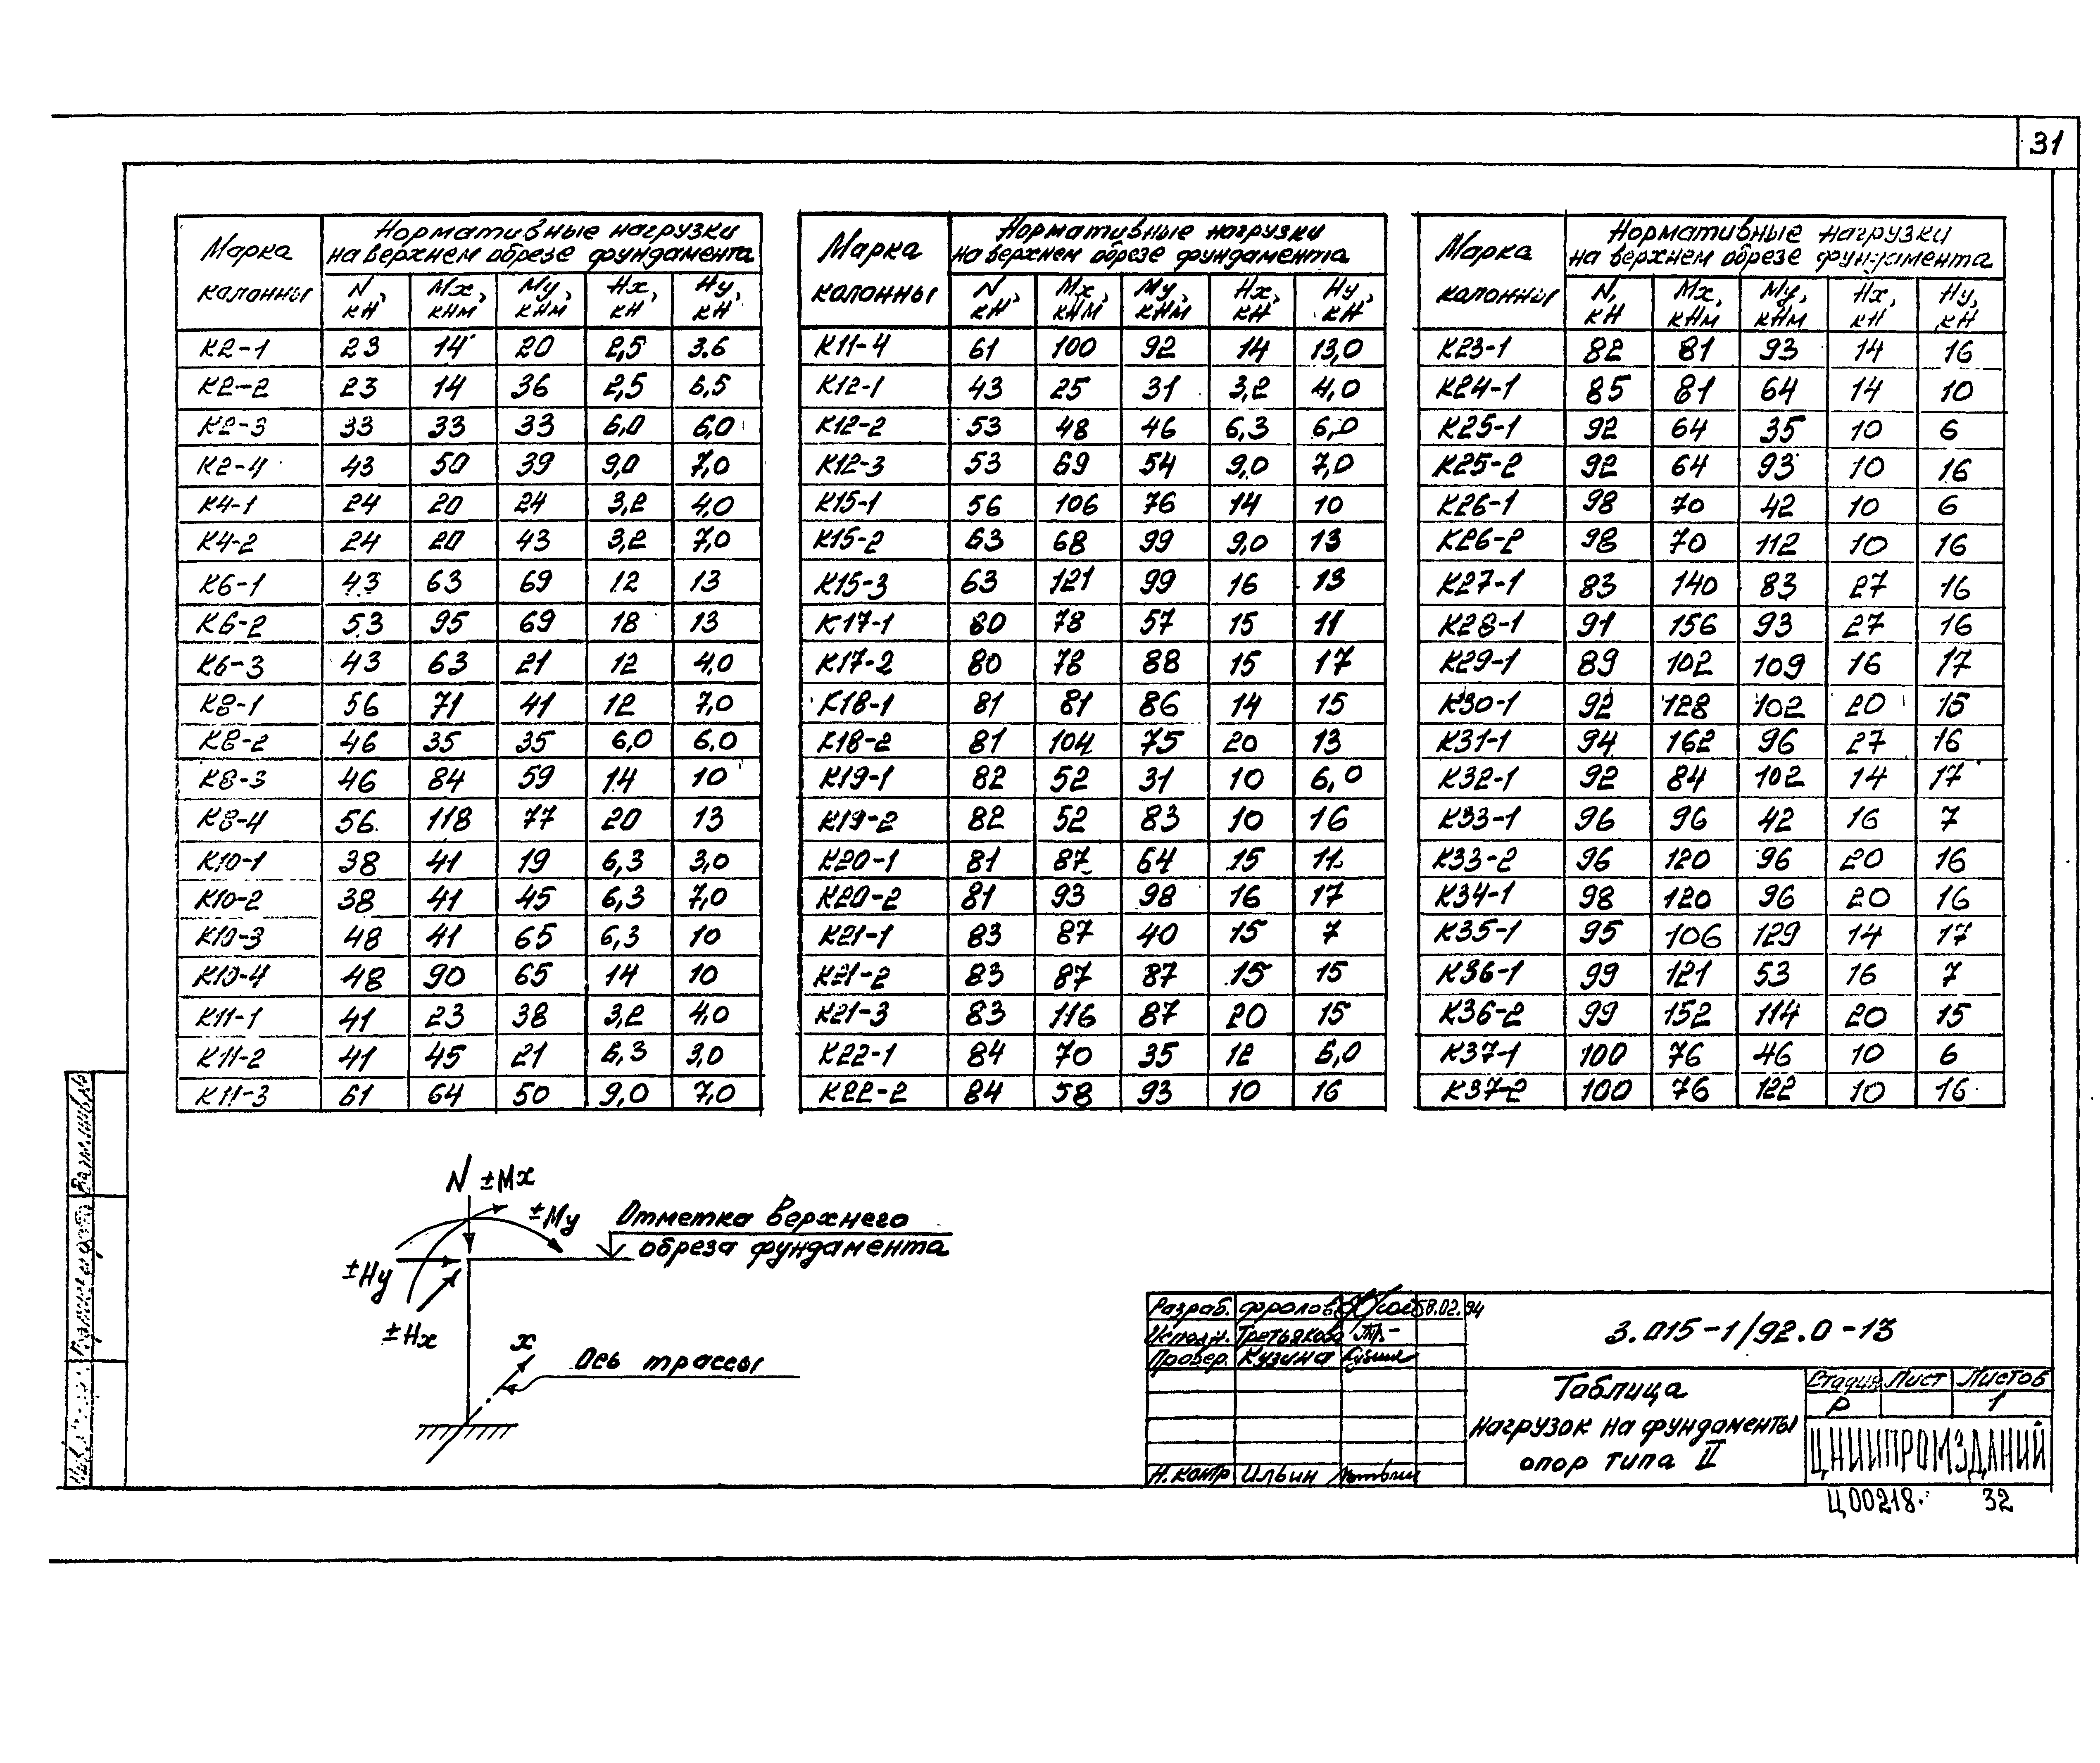 31
Марка колонны | Нормативные нагрузки на верхнем обрезе фундамента
N, кН | Mx, кНм | My, кНм | Hx, кН | Hy, кН
К2-1 23 14 20 2,5 3.6
К2-2 23 14 36 2,5 6,5
К2-3 33 33 33 6,0 6,0
К2-4 43 50 39 9,0 7,0
К4-1 24 20 24 3,2 4,0
К4-2 24 20 43 3,2 7,0
К6-1 43 63 69 12 13
К6-2 53 95 69 18 13
К6-3 43 63 21 12 4,0
К8-1 56 71 41 12 7,0
К8-2 46 35 35 6,0 6,0
К8-3 46 84 59 14 10
К8-4 56 118 77 20 13
К10-1 38 41 19 6,3 3,0
К10-2 38 41 45 6,3 7,0
К10-3 48 41 65 6,3 10
К10-4 48 90 65 14 10
К11-1 41 23 38 3,2 4,0
К11-2 41 45 21 6,3 3,0
К11-3 61 64 50 9,0 7,0
Марка колонны | Нормативные нагрузки на верхнем обрезе фундамента
N, кН | Mx, кНм | My, кНм | Hx, кН | Hy, кН
К11-4 61 100 92 14 13,0
К12-1 43 25 31 3,2 4,0
К12-2 53 48 46 6,3 6,0
К12-3 53 69 54 9,0 7,0
К15-1 56 106 76 14 10
К15-2 63 68 99 9,0 13
К15-3 63 121 99 16 13
К17-1 80 78 57 15 11
К17-2 80 78 88 15 17
К18-1 81 81 86 14 15
К18-2 81 104 75 20 13
К19-1 82 52 31 10 6,0
К19-2 82 52 83 10 16
К20-1 81 87 64 15 11
К20-2 81 93 98 16 17
К21-1 83 87 40 15 7
К21-2 83 87 87 15 15
К21-3 83 116 87 20 15
К22-1 84 70 35 12 6,0
К22-2 84 58 93 10 16
Марка колонны | Нормативные нагрузки на верхнем обрезе фундамента
N, кН | Mx, кНм | My, кНм | Hx, кН | Hy, кН
К23-1 82 81 93 14 16
К24-1 85 81 64 14 10
К25-1 92 64 35 10 6
К25-2 92 64 93 10 16
К26-1 98 70 42 10 6
К26-2 98 70 112 10 16
К27-1 83 140 83 27 16
К28-1 91 156 93 27 16
К29-1 89 102 109 16 17
К30-1 92 128 102 20 15
К31-1 94 162 96 27 16
К32-1 92 84 102 14 17
К33-1 96 96 42 16 7
К33-2 96 120 96 20 16
К34-1 98 120 96 20 16
К35-1 95 106 129 14 17
К36-1 99 121 53 16 7
К36-2 99 152 114 20 15
К37-1 100 76 46 10 6
К37-2 100 76 122 10 16
N ±Mx
±My
±Hy
±Hx
Отметка верхнего
обреза фундамента
x
Ось трассы
Разраб. Фролов 02.94
Исполн. Третьякова
Провер. Кузина
Н. контр Ильин
3.015-1/92.0-13
Таблица
нагрузок на фундаменты
опор типа II
Стадия Лист Листов
Р 1
ЦНИИПРОМЗДАНИЙ
Ц00218 32